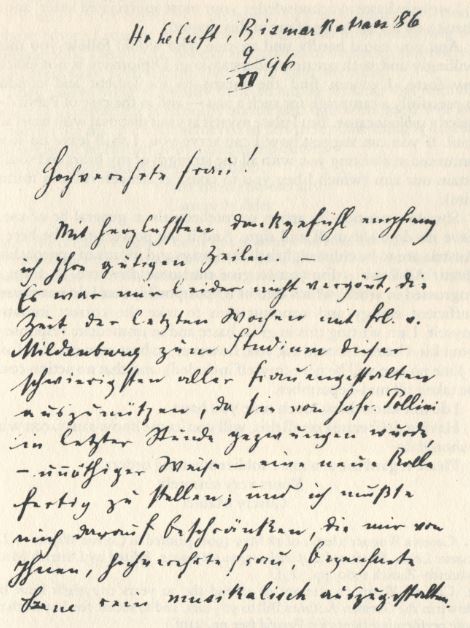 Hoheluft, Bismarkstrasse 86
9/XII 96
Hochverehrte Frau!
Mit herzlichstem Dankgefühl empfing
ich Ihre gütigen Zeilen. —
Es war mir leider nicht vergönt, die
Zeit der letzten Wochen mit Frl.
Mildenburg zum Studium dieser
schwierigsten aller Frauengestalten
auszunützen, da sie von Hofr. Pollini
in letzter Stunde gezwungen wurde,
– unnöthiger Weise – eine neue Rolle
fertig zu stellen; und ich mußte
mich darauf beschränken, die mir von
Ihnen, hochverehrte Frau, bezeichnete
Scene rein musikalisch auszugestalten